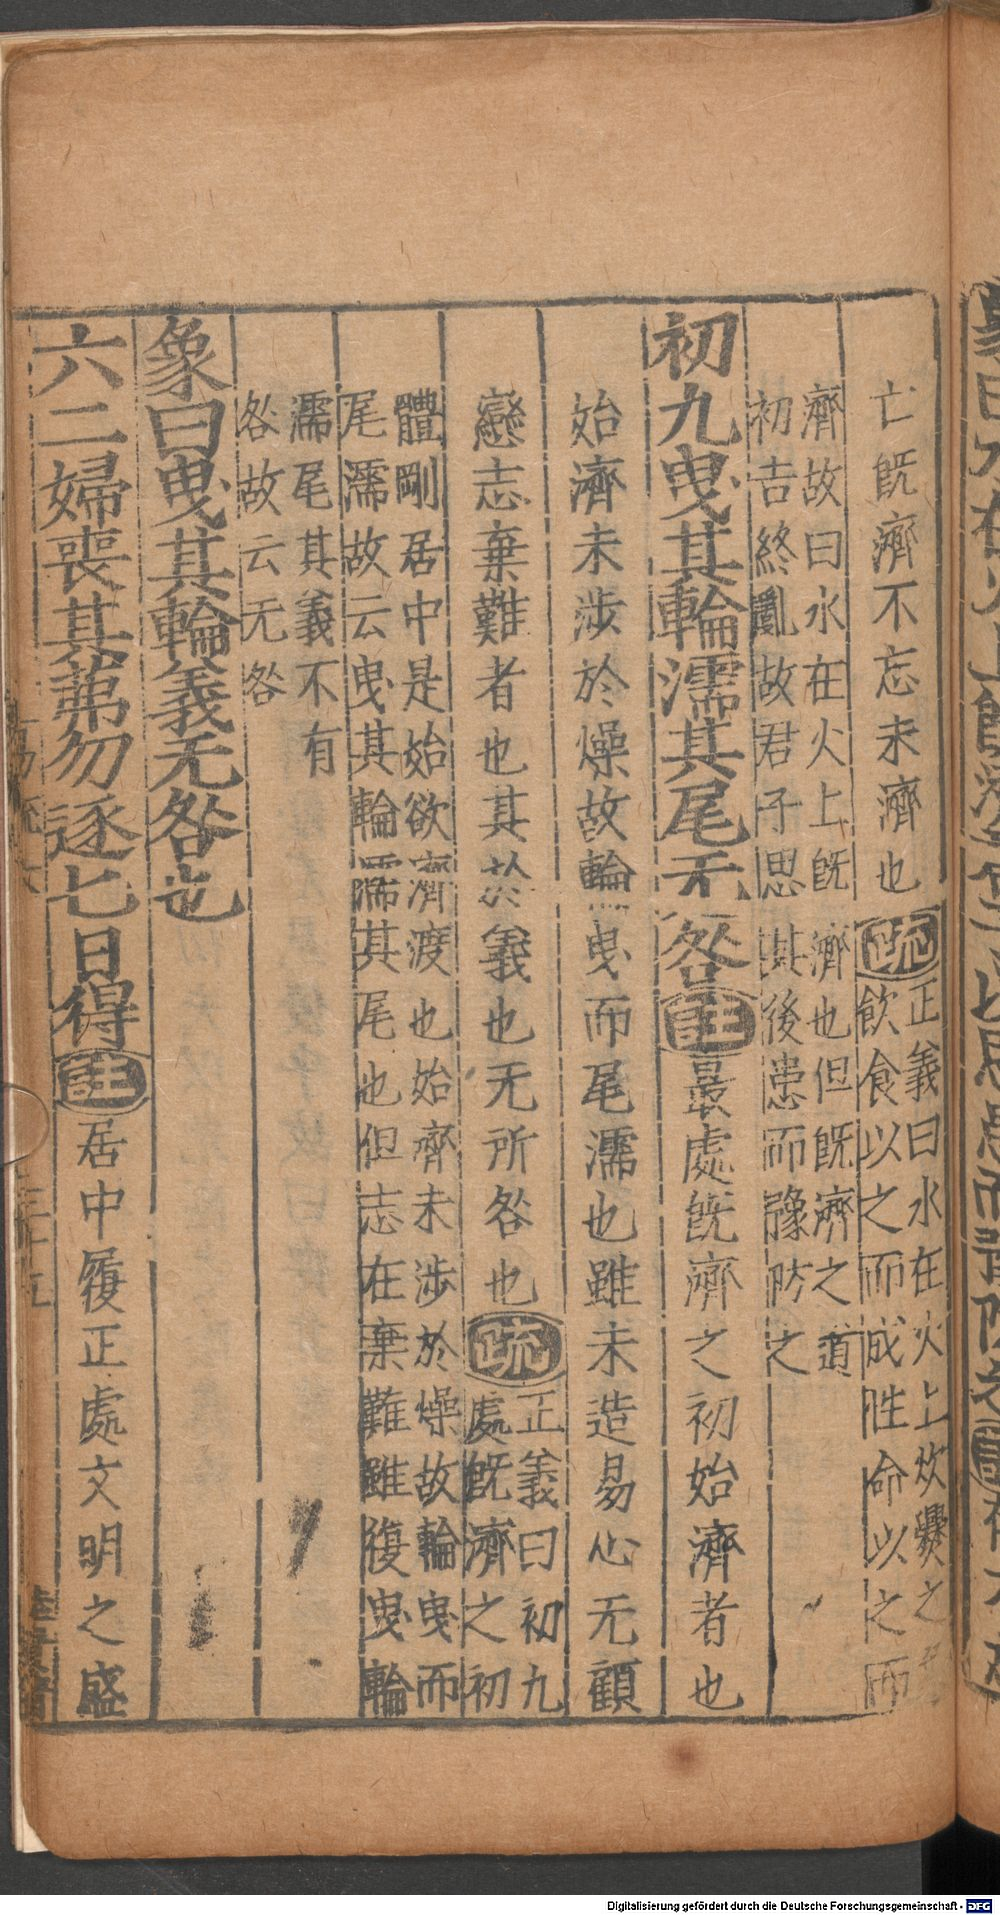 亡旣濟不忘未濟也疏正義曰水在火上炊㸑之
飲食以之而成性命以之而
濟故曰水在火上旣濟也但旣濟之道
初吉終亂故君子思其後患而豫防之
初九曳其輪濡其尾无咎註最處旣濟之初始濟者也
始濟未涉於燥故輪曳而尾濡也雖未造易心无顧
戀志棄難者也其於義也无所咎也疏正義曰初九
處旣濟之初
體剛居中是始欲濟渡也始濟未涉於燥故輪曳而
尾濡故云曳其輪濡其尾也但志在棄難雖復曳輪
濡尾其義不有
咎故云无咎
象曰曳其輪義无咎也
六二婦喪其茀勿逐七日得註居中履正處文明之盛
Digitalisierung gefördert durch die Deutsche Forschungsgemeinschaft - DFG